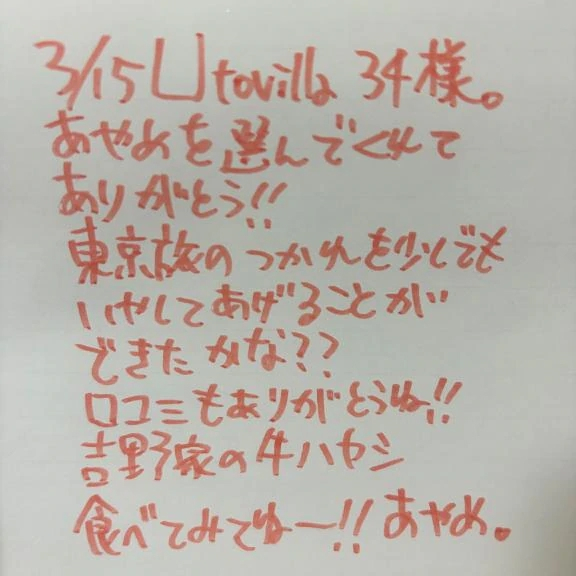 3/15 Utovilla 34様。
あやめを選んでくれて
ありがとう!!
東京旅のつかれを少しでも
いやしてあげることが
できたかな??
口コミもありがとうね!!
吉野家の牛ハヤシ
食べてみてねー!! あやめ。